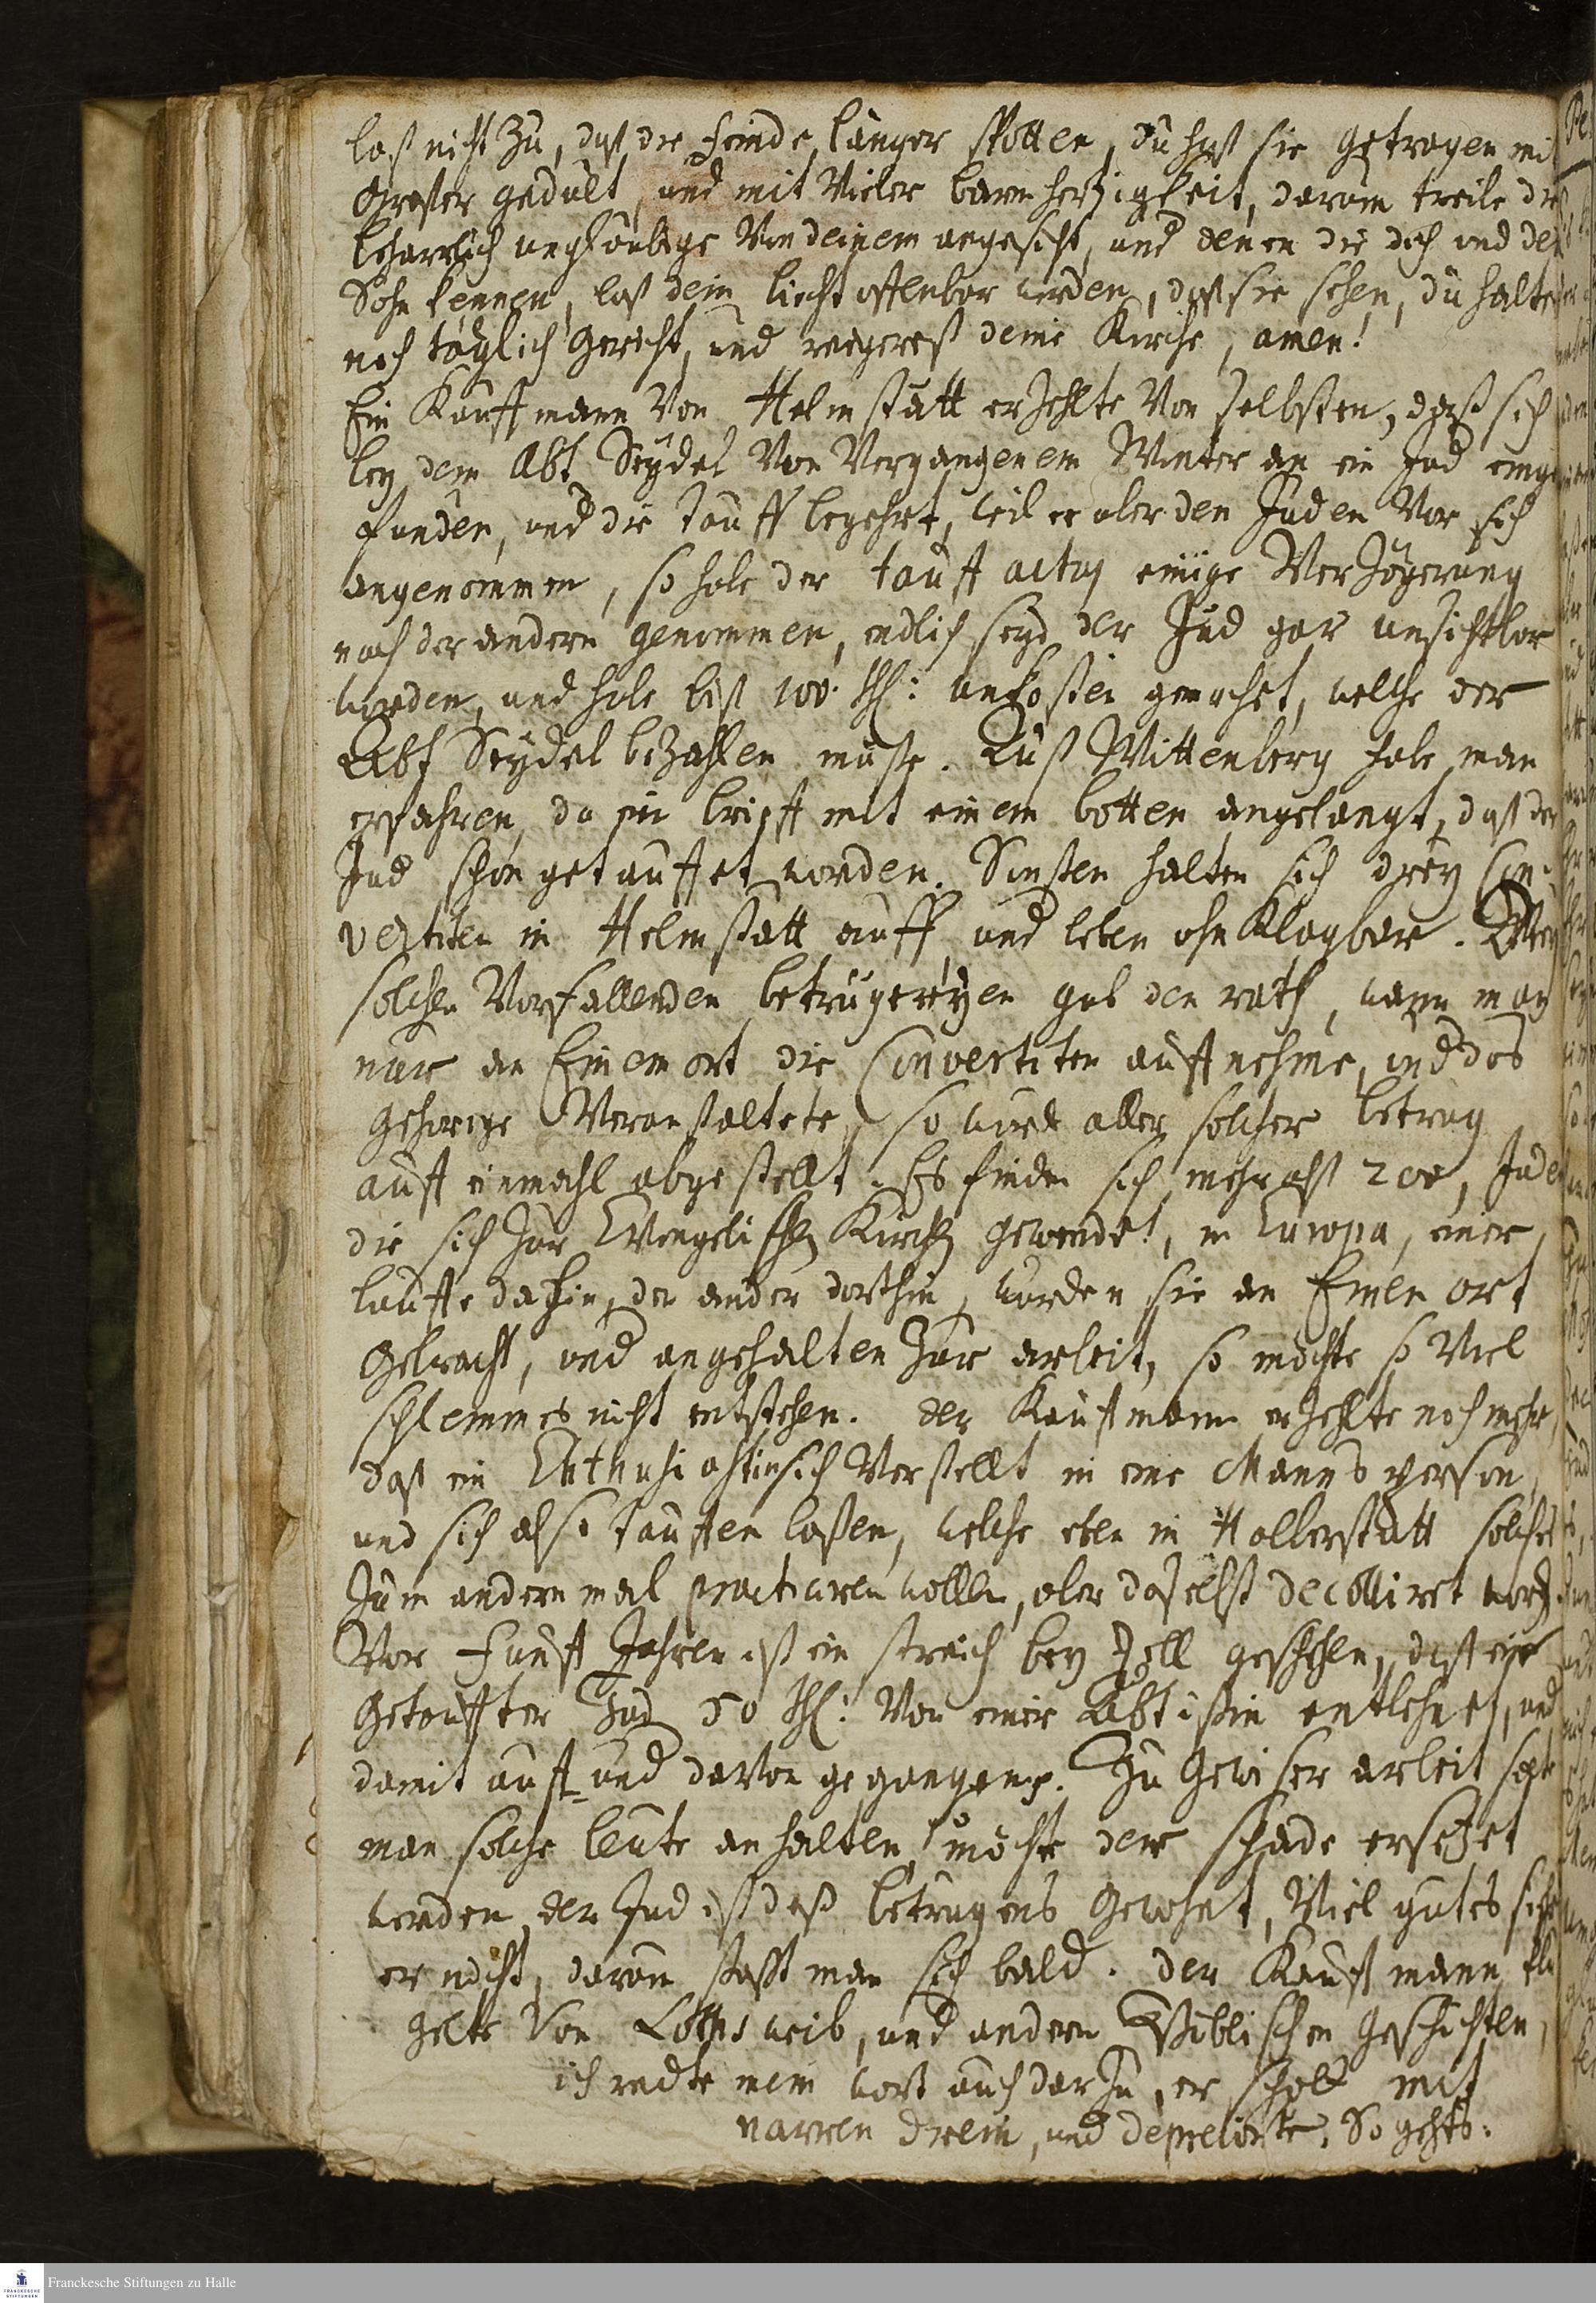 laß nicht zu, daß die feinde länger spotten, du hast sie getragen mit
großer gedult, und mit vieler barmhertzigkeit, darum treile die
beharrlich ungläubige von deinem angesicht, und denen die dich und den
Sohn kennen, laß dein liecht offenbar werden, daß sie sehen, du haltest
noch täglich gericht, und regierest deine Kirche, amen!
Ein Kauffmann von Helmstätt erzehlte von selbsten, daß sich
bey dem Abt Seydel von vergangenem Winter an ein Jud einge
funden, und die tauff begehrt, weil er aber den Juden vor sich
angenommen, so habe der tauff actus einige Verzögerung
nach der andern genommen, endlich seyd der Jud gar unsichtbar
worden, und habe biß 100. thl: unkosten gemachet, welche der
Abt Seydel bezahlen müste. Auß Wittenberg habe man
erfahren, da ein brieff mit einem botten angelangt, daß der
Jud schon getauffet worden. Sonsten halten sich drey Con-
vertiten in Helmstätt auff, und leben ohn Klagbar. Bey
solchen vorfallenden betrügereyen gab den rath, wann man
nur an Einem ort die Convertiten auffnehme, und das
gehörige veranstaltete, so würde aller solcher betrug
auff einmahl abgestellt. Es finden sich mehr als 200, Juden
die sich zur Evangelischen Kirchen gewendet, in Europa, einer
lauffe dahin, der ander dorthin, worden sie an Einen ort
gebracht, und angehalten zur arbeit, so möchte so viel
schlemmes nicht entstehen. der Kauffmann erzehlte noch mehr,
daß ein Enthusiastin sich verstellt in eine Manns person,
und sich also tauffen laßen, welche eben in Halberstatt solches
zum andern mal practiciren wollen, aber daselbst decolliret word.
Vor fünff Jahren ist ein streich bey Zell geschehen, daß ein
getauffter Jud 50 thl: von einer Äbtißin entlehnet, und
damit auff- und davon gegangen. Zu gewißer arbeit solte
man solche leute anhalten, möchte der schade ersetzet
werden, der Jud ist deß betrugens gewohnt, viel gutes sieht
er nicht, daran stoßt man sich bald. der Kauffmann klü
gelte von Loths weib, und andern Biblischen geschichten,
ich redte mein wort auch darzu, er schalt mit
narren drein, und deprecirte. So gehts:
Franckesche Stiftungen zu Halle